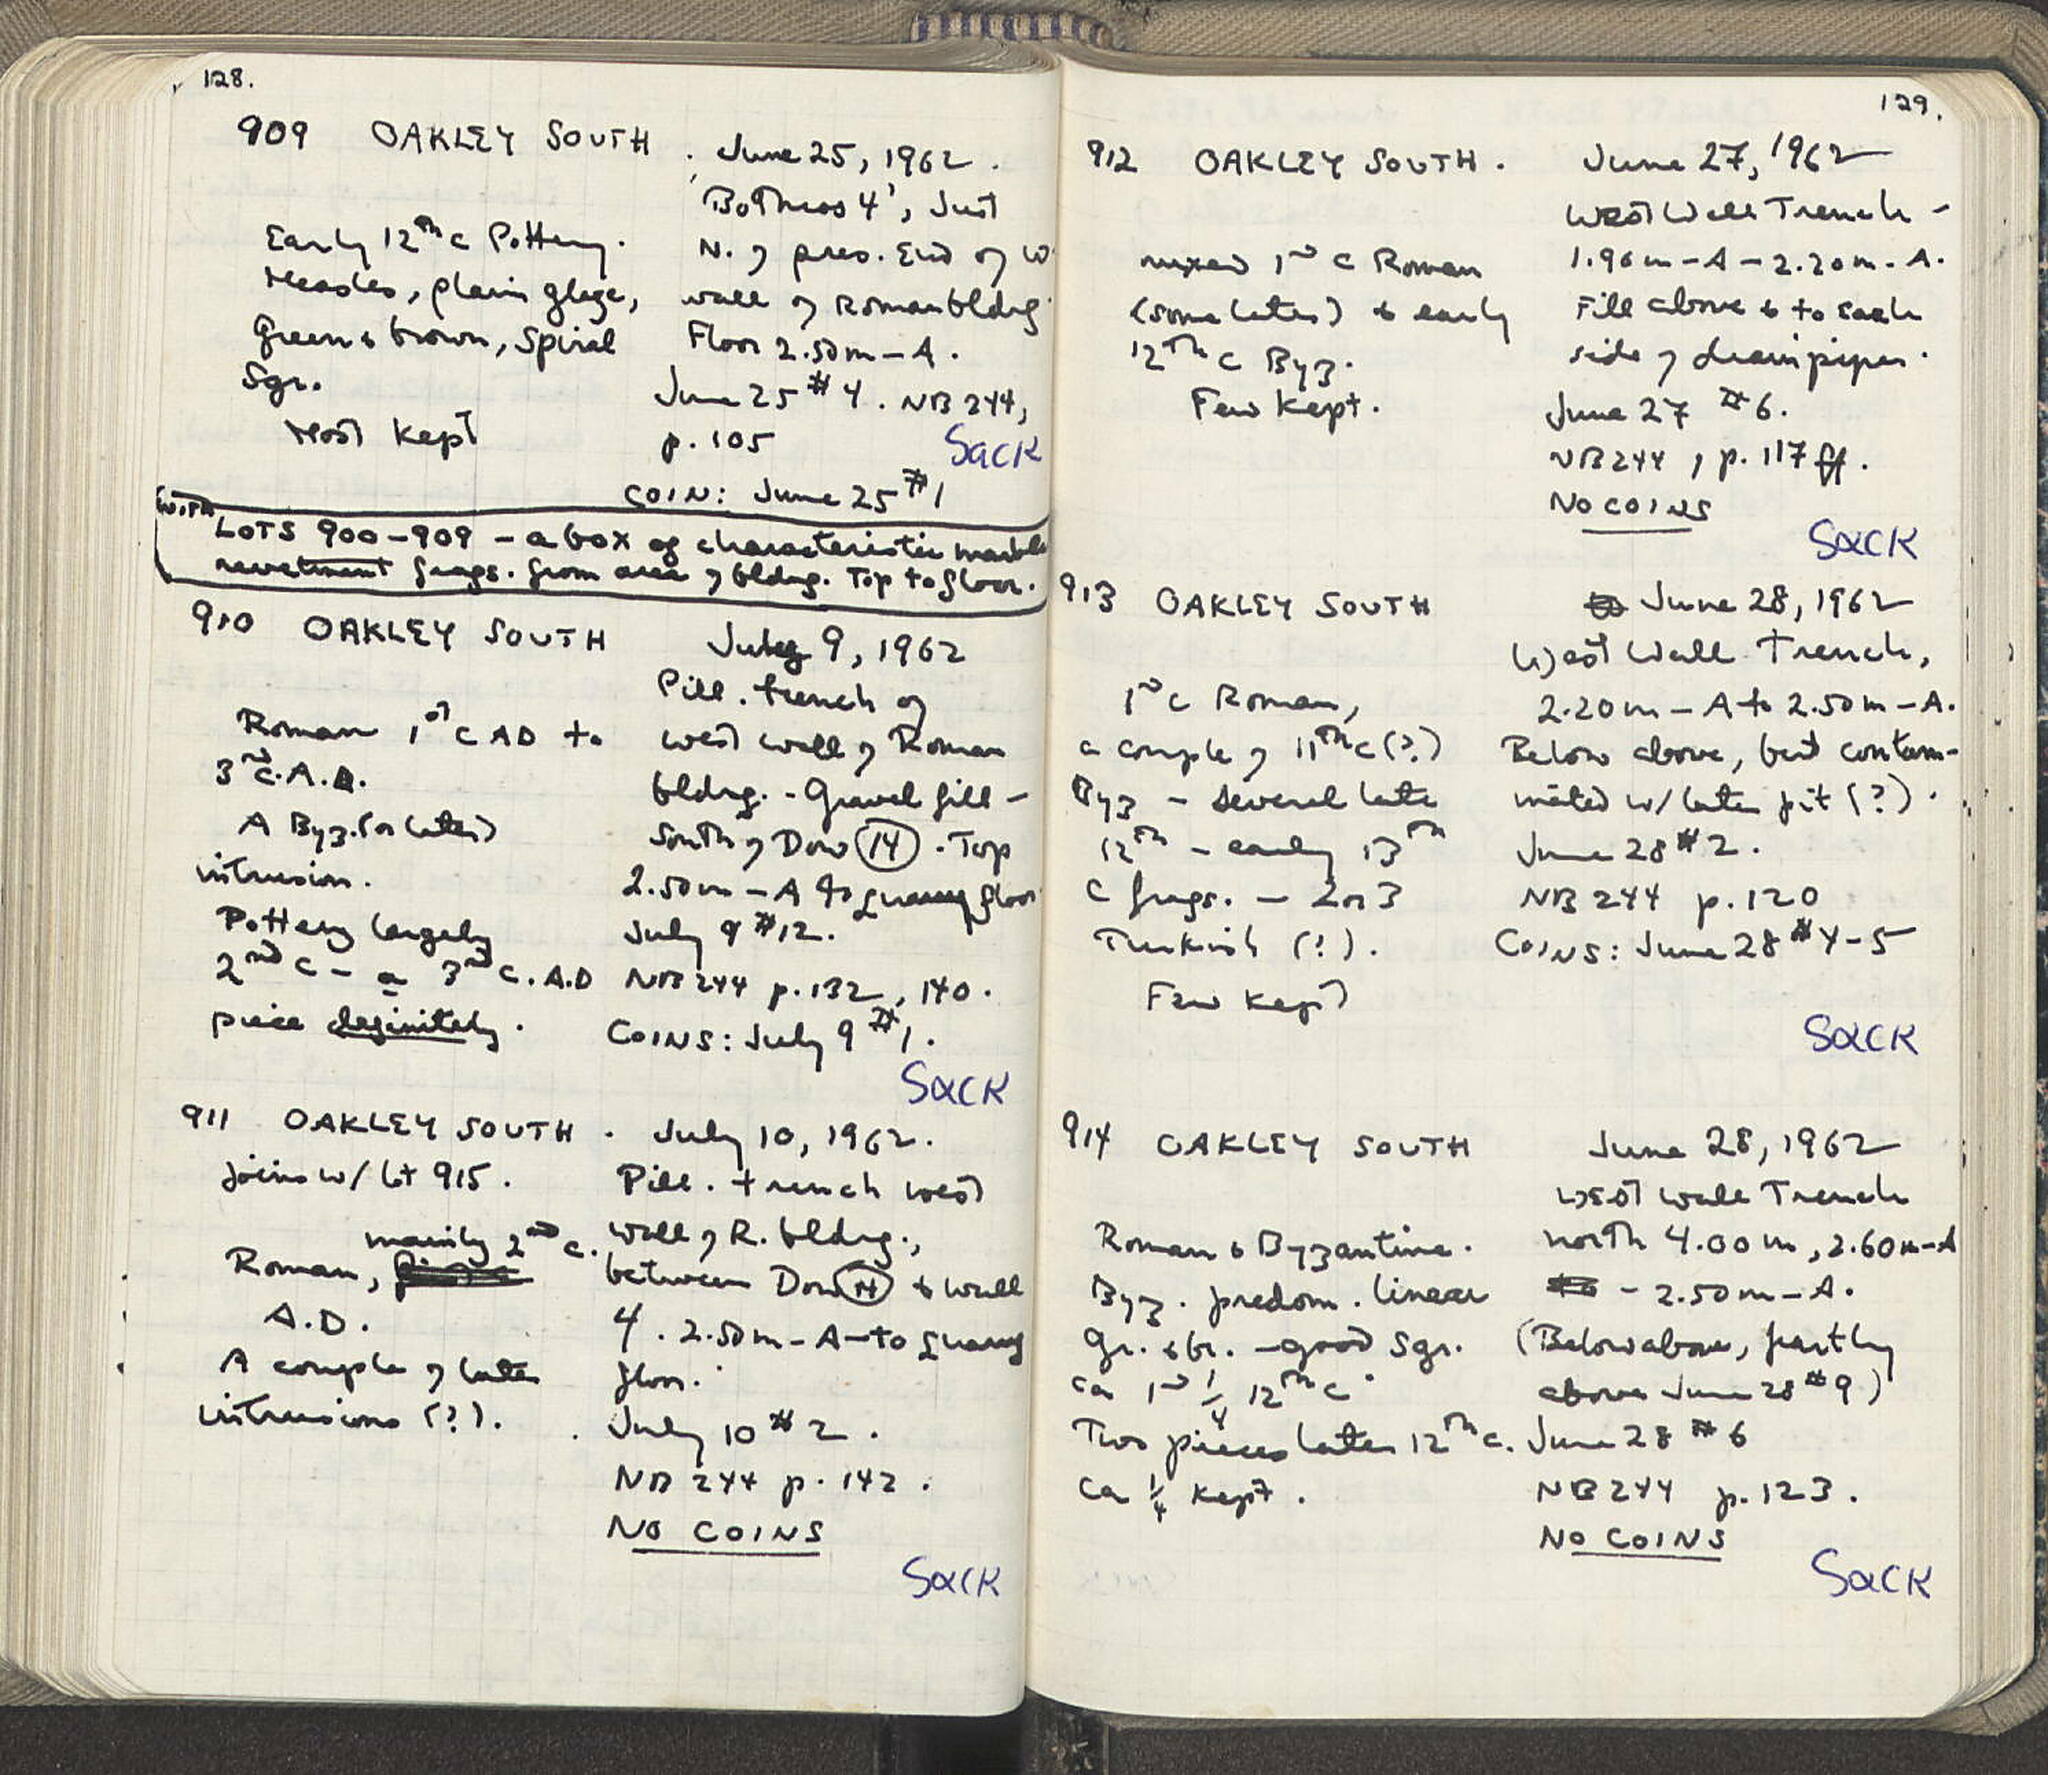 128.
909 OAKLEY SOUTH . June 25, 1962.
Bothros 4', Just
Early 12th c Pottery.
N. of pres. End of W
Measles, plain glaze,
wall of Roman bldg.
Green & brown, Spiral
Floor 2.50m-A.
Sgr.
June 25 #4. NB 244,
Most kept
p. 105
Sack
COIN: June 25 #1
with
LOTS 900-909 - a box of characteristic marble
revetment frags. from area of bldg. Top to floor.
910 OAKLEY SOUTH July 9, 1962
Pill. trench of
Roman 1st C AD to
west wall of Roman
3rd C. A.D.
bldg. - Gravel fill -
A Byz. (or later)
South of Dow 14. Top
intrusion.
2.50m-A to quarry floor
Pottery largely
July 9 #12.
2nd c - a 3rd c. A.D
NB 244 p. 132, 140.
piece definitely.
COINS: July 9 #1.
Sack
911 OAKLEY SOUTH . July 10, 1962.
joins w/ lot 915.
Pill. trench west
mainly 2nd c.
wall of R. bldg.,
Roman,
between Dow 14 & Wall
A.D.
4. 2.50m-A-to quarry
A couple of later
floor.
intrusions (?).
July 10 #2.
NB 244 p. 142.
NO COINS
Sack
129.
912 OAKLEY SOUTH. June 27, 1962
West Wall Trench -
mixed 1st c Roman
1.96m-A-2.20m-A.
(some later) & early
Fill above & to each
12th c Byz.
side of drainpipes.
Few kept.
June 27 #6.
NB 244, p. 117 ff.
NO COINS
Sack
913 OAKLEY SOUTH June 28, 1962
West Wall Trench,
1st c Roman,
2.20m-A to 2.50m-A.
a couple of 11th c (?)
Below above, but contam-
Byz - several late
inated w/ later pit (?).
12th - early 13th
June 28 #2.
c frags. - 2 or 3
NB 244 p. 120
Turkish (?).
COINS: June 28 #4-5
Few kept
Sack
914 OAKLEY SOUTH June 28, 1962
West Wall Trench
Roman & Byzantine.
north 4.00m, 2.60m-A
Byz. predom. linear
- 2.50m-A.
Gr. & br. - good Sgr.
(Below above, partly
ca 1st 1/4 12th c.
above June 28 #9)
Two pieces later 12th c.
June 28 #6
ca 1/4 kept.
NB 244 p. 123.
NO COINS
Sack